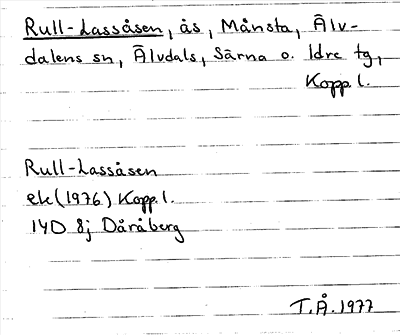 Rull-Lassåsen, ås, Månsta, Älv-
dalens sn, Älvdals, Särna o. Idre tg,
Kopp. l.
Rull-Lassåsen
ek (1976) Kopp. l.
14D 8j Dåråberg
T.Å. 1977